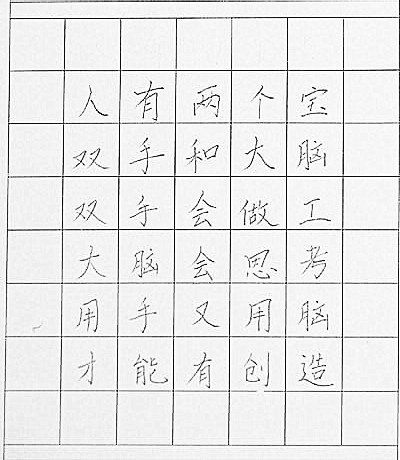 人有两个宝
双手和大脑
双手会做工
大脑会思考
用手又用脑
才能有创造